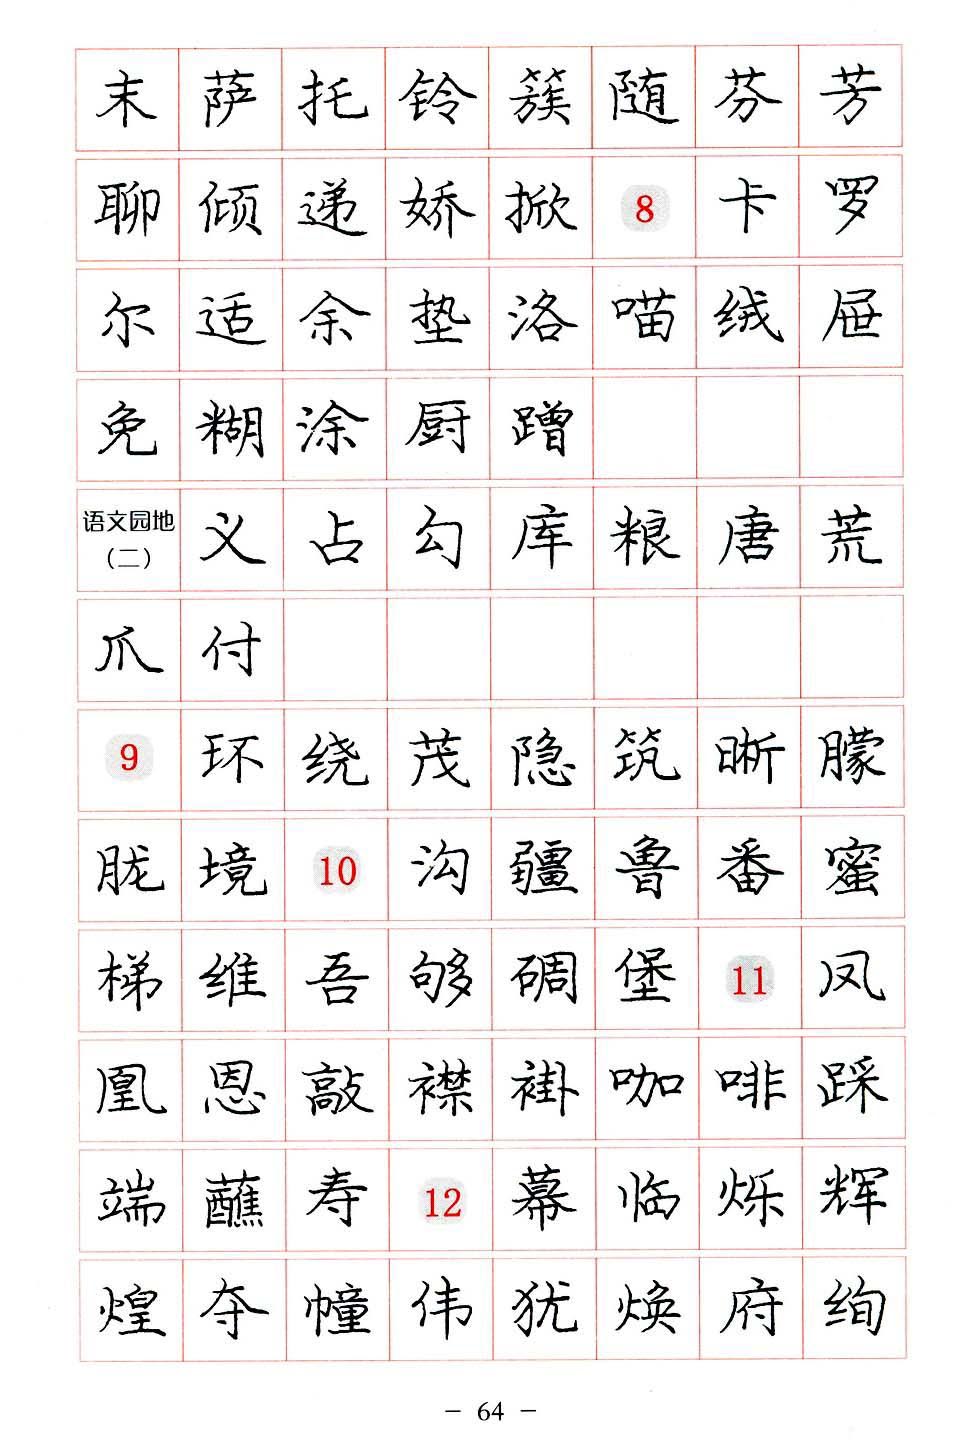 末 萨 托 铃 簇 随 芬 芳
聊 倾 递 娇 掀 8 卡 罗
尔 适 余 垫 洛 喵 绒 屉
免 糊 涂 厨 蹭
语文园地（二） 义 占 勾 库 粮 唐 荒
爪 付
9 环 绕 茂 隐 筑 晰 朦
胧 境 10 沟 疆 鲁 番 蜜
梯 维 吾 够 碉 堡 11 凤
凰 恩 敲 襟 褂 咖 啡 踩
端 蘸 寿 12 幕 临 烁 辉
煌 夺 幢 伟 犹 焕 府 绚
- 64 -